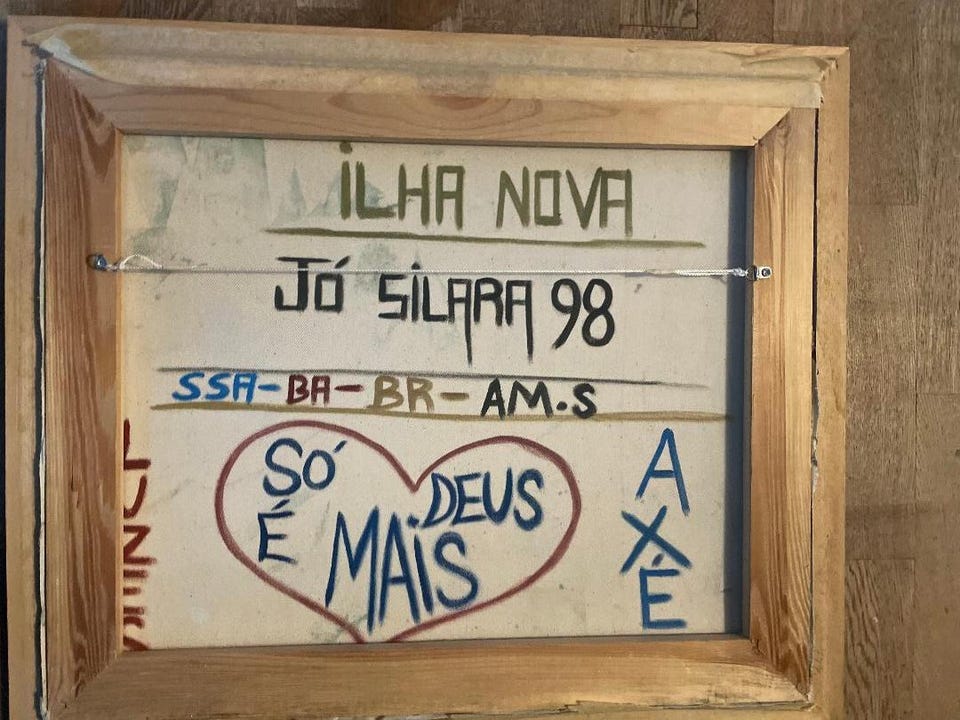 ILHA NOVA
JÓ SILARA 98
SSA-BA-BR-AM.S
SÓ DEUS
É MAIS
AXÉ